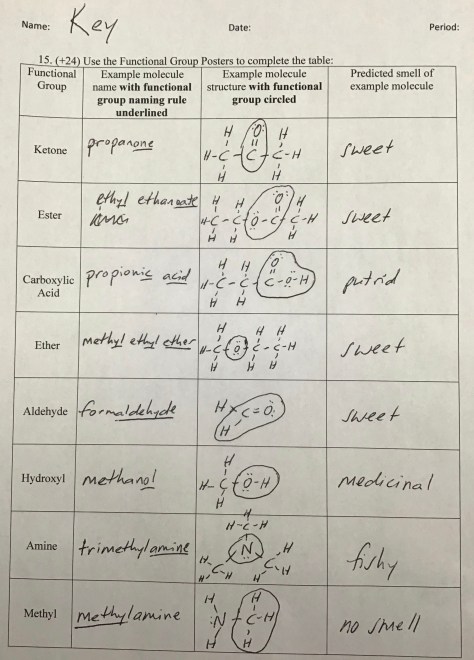 Name: Key Date: Period:
15. (+24) Use the Functional Group Posters to complete the table:
Functional Group
Example molecule name with functional group naming rule underlined
Example molecule structure with functional group circled
Predicted smell of example molecule
Ketone
propanone
H O H
H-C-C-C-H
H H
sweet
Ester
ethyl ethanoate
H H O H
H-C-C-O-C-C-H
H H H
sweet
Carboxylic Acid
propionic acid
H H O
H-C-C-C-O-H
H H
putrid
Ether
methyl ethyl ether
H H H
H-C-O-C-C-H
H H H
sweet
Aldehyde
formaldehyde
H
C=O
H
sweet
Hydroxyl
methanol
H
H-C-O-H
H
medicinal
Amine
trimethylamine
H
H-C-H
N
H H
C C
H H H H
fishy
Methyl
methylamine
H H
N-C-H
H H
no smell